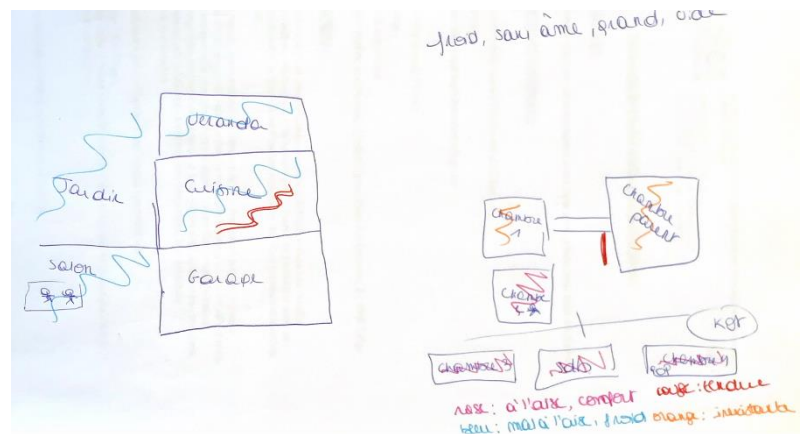 froid, sans âme, grand, vide
Veranda
Jardin
Cuisine
Salon
Garage
Chambre
1
Chambre
parent
Chambre
KOT
Chambre
Salon
Chambre
rose: à l'aise, confort rouge: tendue
bleu: mal à l'aise, froid orange: inexistante